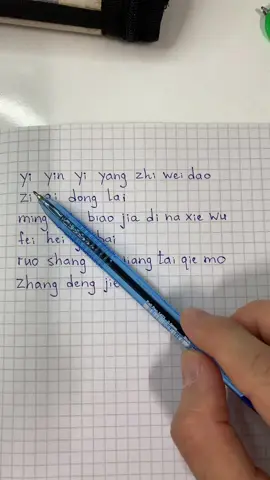 yi yin yi yang zhi wei dao
zi dong lai
ming biao jia di na xie wu
fei hei
ruo shang tai qie mo
zhang deng jie